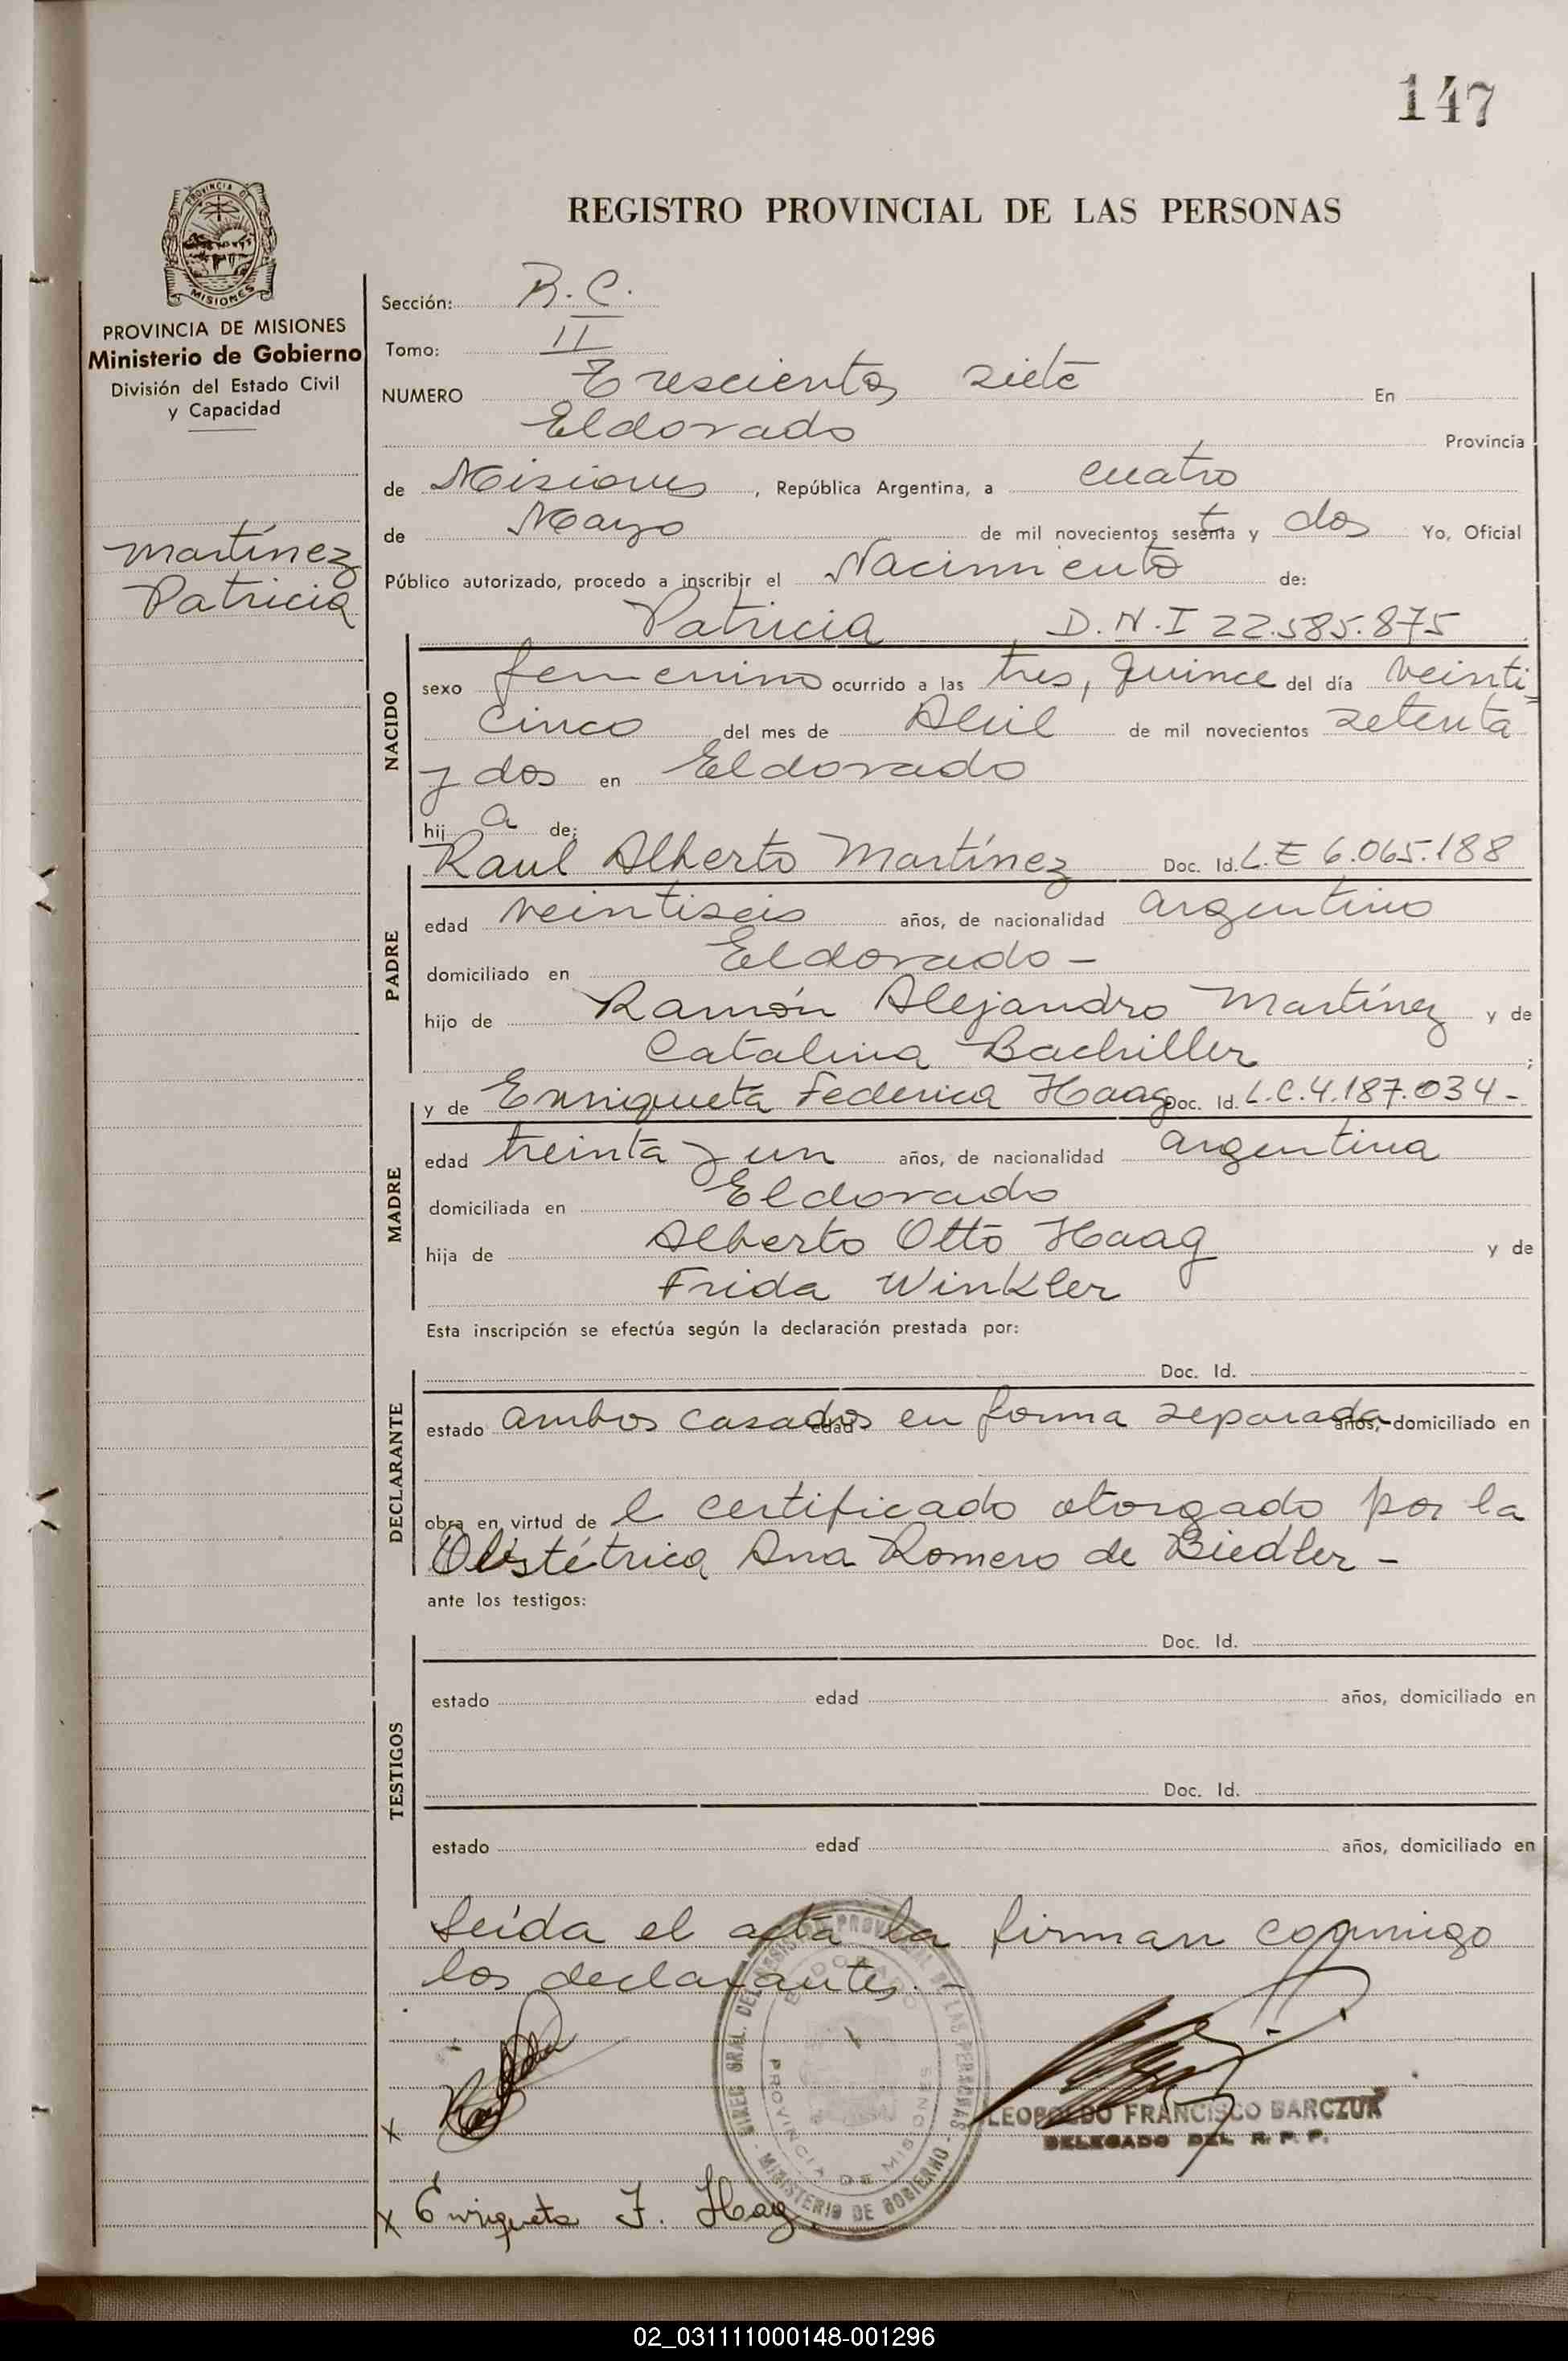 147
REGISTRO PROVINCIAL DE LAS PERSONAS
PROVINCIA DE MISIONES
PROVINCIA DE MISIONES
Ministerio de Gobierno
División del Estado Civil
y Capacidad
Martínez
Patricia
Sección: B. C.
Tomo: II
NUMERO Trescientos siete En
Eldorado Provincia
de Misiones, República Argentina, a cuatro
de Mayo de mil novecientos setenta y dos Yo, Oficial
Público autorizado, procedo a inscribir el Nacimiento de:
Patricia D.N.I 22.585.875
NACIDO
sexo femenino ocurrido a las tres, quince del día veinti
cinco del mes de Abril de mil novecientos setenta
y dos en Eldorado
hij a de:
Raul Alberto Martínez Doc. Id. L.E 6.065.188
PADRE
edad veintiseis años, de nacionalidad argentino
domiciliado en Eldorado -
hijo de Ramón Alejandro Martínez y de
Catalina Bachiller ;
y de Enriqueta Federica Haag Doc. Id. L.C. 4.187.034 -
MADRE
edad treinta y un años, de nacionalidad argentina
domiciliada en Eldorado
hija de Alberto Otto Haag y de
Frida Winkler
Esta inscripción se efectúa según la declaración prestada por:
Doc. Id.
DECLARANTE
estado ambos casados en forma separada edad años, domiciliado en
obra en virtud de l certificado otorgado por la
Obstétrica Ana Romero de Biedler -
ante los testigos:
Doc. Id.
TESTIGOS
estado edad años, domiciliado en
Doc. Id.
estado edad años, domiciliado en
Leída el acta la firman conmigo
los declarantes. -
DIREC. GRAL. DEL REGISTRO PROVINCIAL DE LAS PERSONAS
MINISTERIO DE GOBIERNO
ELDORADO
PROVINCIA DE MISIONES
LEOPOLDO FRANCISCO BARCZUK
DELEGADO DEL R. P. P.
x
x Enriqueta F. Haag.
02_031111000148-001296